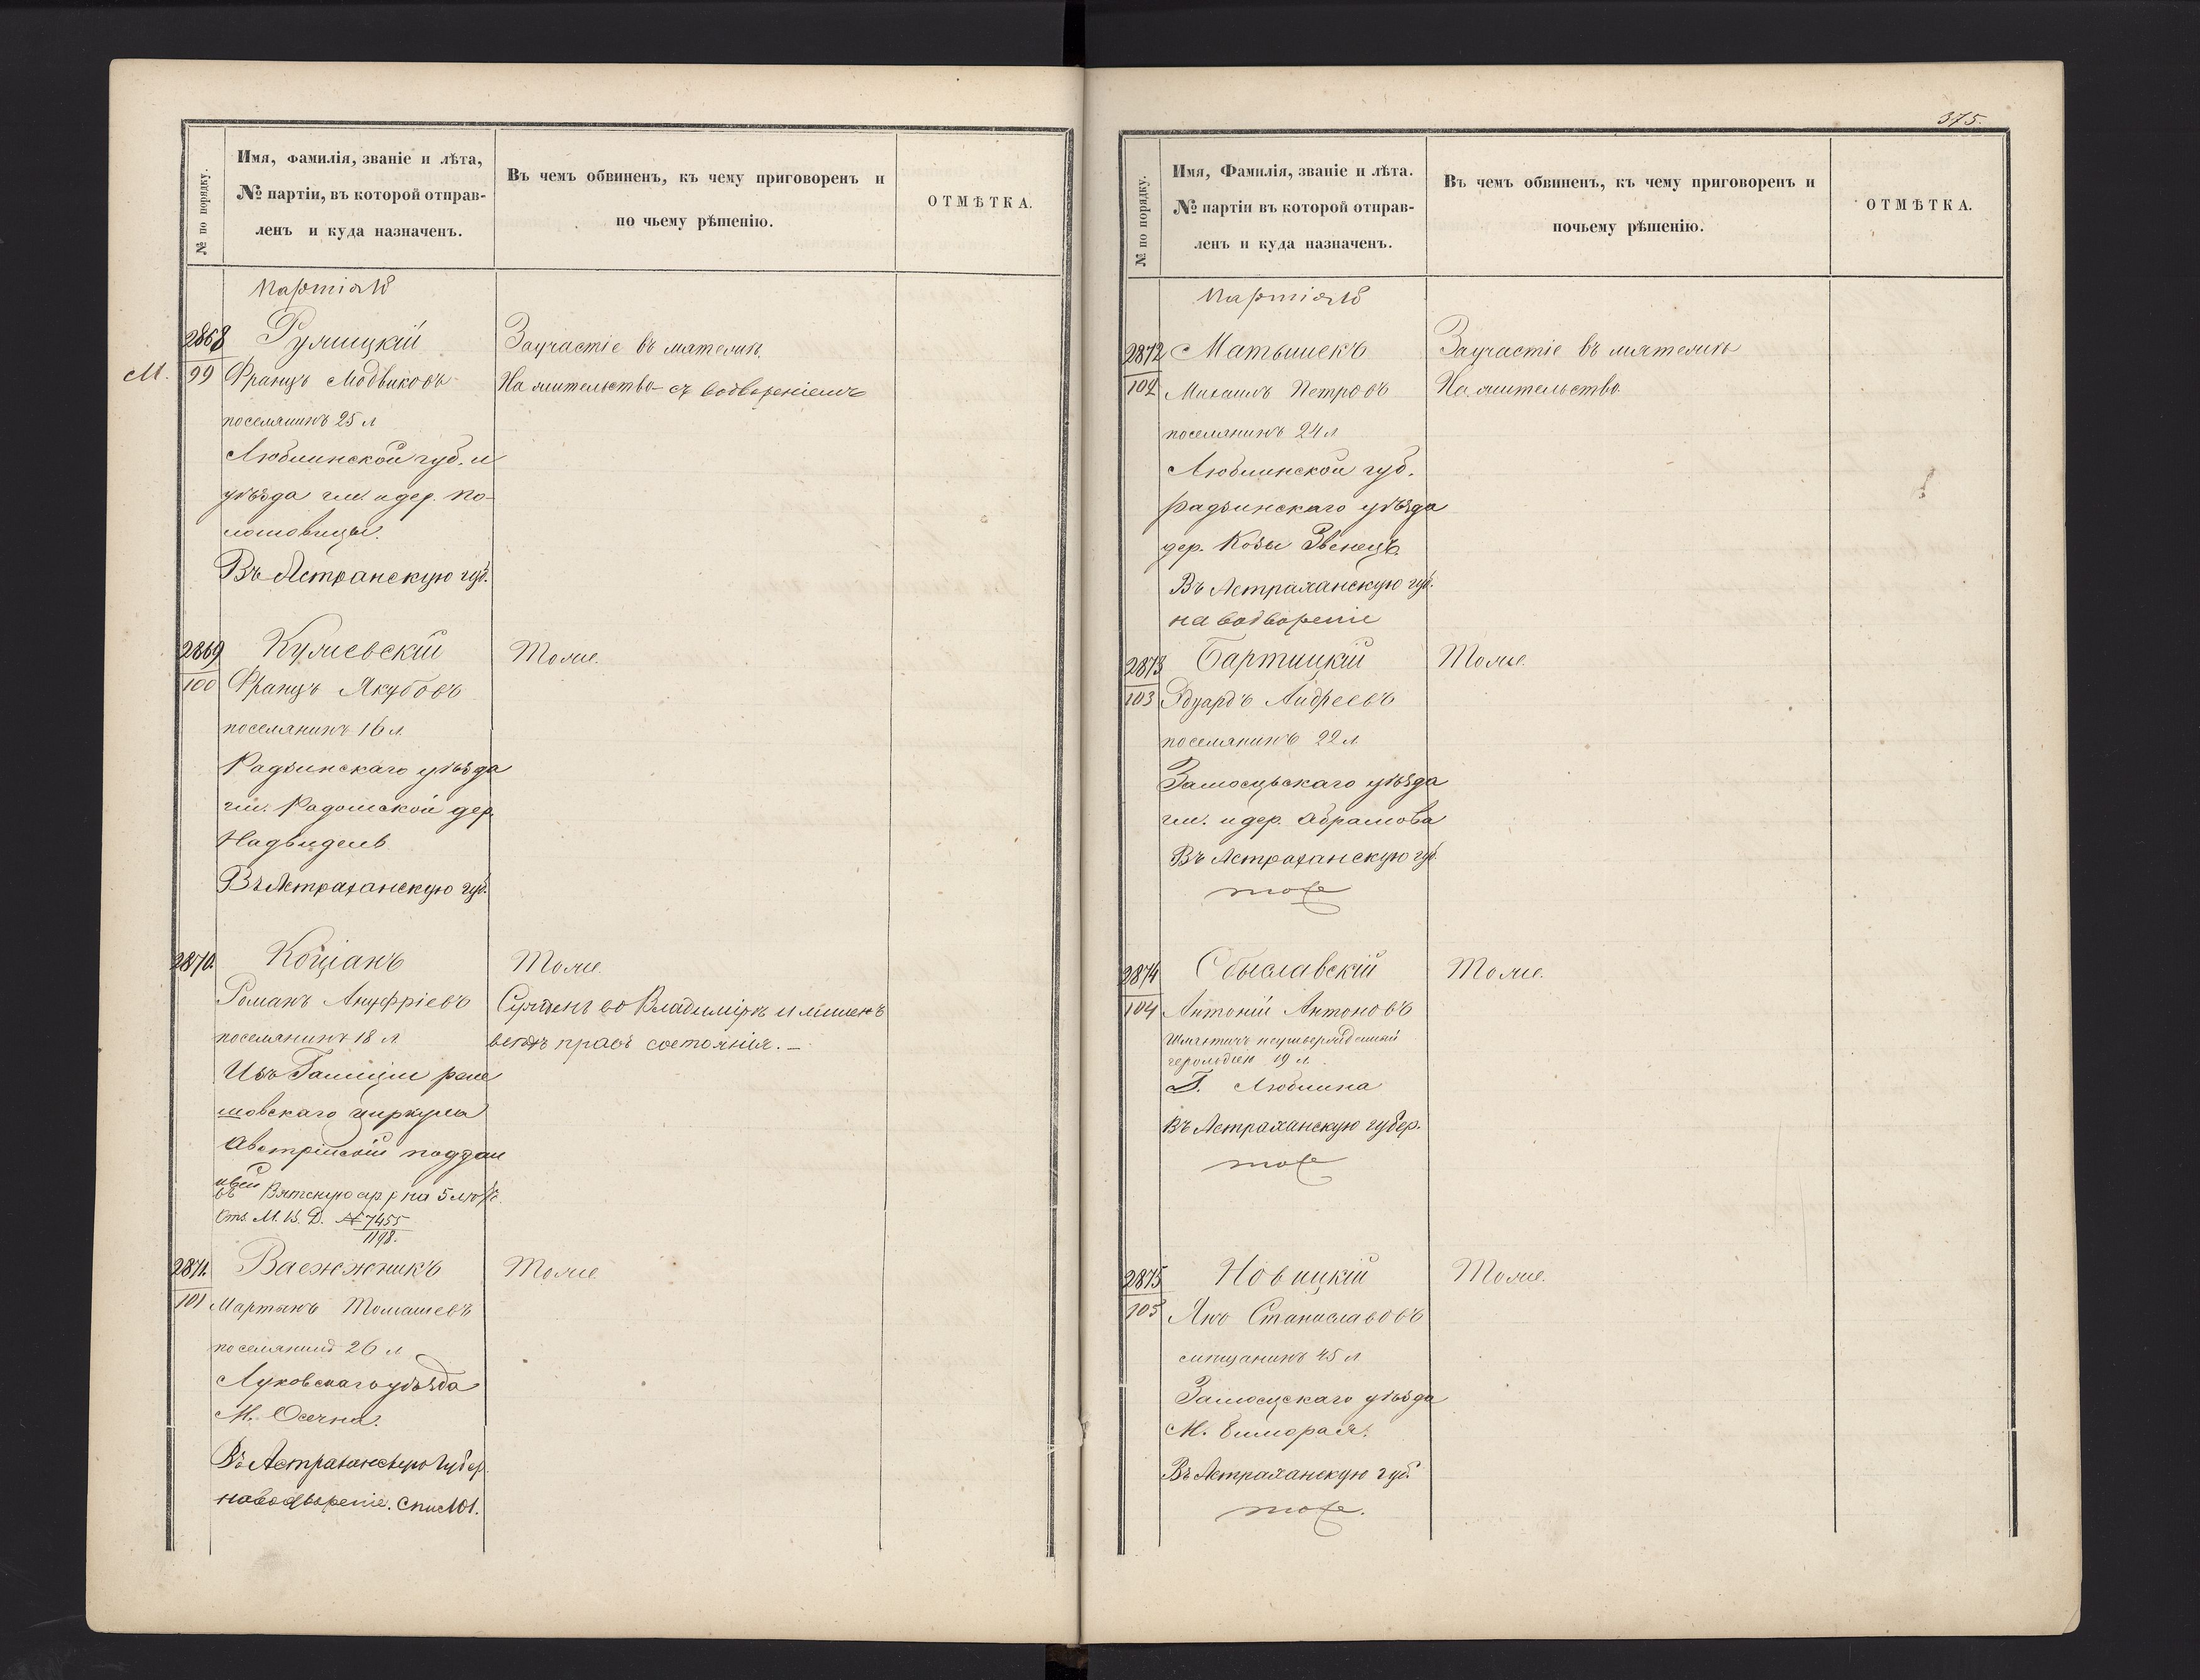 № по порядку.
Имя, фамилія, званіе и лѣта,
№ партіи, въ которой отправ-
ленъ и куда назначенъ.
Въ чемъ обвиненъ, къ чему приговоренъ и
по чьему рѣшенію.
ОТМѢТКА.
Партія
2868
Франц
99
поселянинъ 25 л
За участіе въ мятежѣ.
На жительство съ водвореніемъ
М.
Люблинской губ. и
уѣзда гм. и дер.
Въ Астраханскую губ.
2869
100
Францъ Якубовъ
поселянинъ 16 л.
Тоже.
Радзинскаго уѣзда
гм. Радомской дер.
Въ Астраханскую губ.
2870.
Коціанъ
Романъ Ануфріевъ
поселянинъ 18 л.
Тоже.
Сужденъ во Владимірѣ и лишенъ
всѣхъ правъ состоянія. —
Изъ Галиціи
шовскаго циркула
Австрійскій поддан
ный
въ Вятскую ар. р. на 5 лѣтъ
Отз. М. В. Д. № 7455
1198.
2871.
101
Важжникъ
Мартынъ Томашевъ
поселянинъ 26 л
Тоже.
Луковскаго уѣзда
М.
Въ Астраханскую губер.
на водвореніе. Спис № 1.
375.
№ по порядку.
Имя, Фамилія, званіе и лѣта.
№ партіи въ которой отправ-
ленъ и куда назначенъ.
Въ чемъ обвиненъ, къ чему приговоренъ и
почьему рѣшенію.
ОТМѢТКА.
Партія
2872
102
Матышекъ
Михаилъ Петровъ
поселянинъ 24 л
За участіе въ мятежѣ
На жительство.
Люблинской губ.
Радзинскаго уѣзда
дер. Козы
Въ Астраханскую губ.
на водвореніе
2873
103
Бартицкій
Эдуардъ Андреевъ
поселянинъ 22 л.
Тоже.
Замосцьскаго уѣзда
гм. и дер. Абрамова
Въ Астраханскую губ.
тоже
2874
104
Сбыславскій
Антоній Антоновъ
Шляхтичъ неутвержденный
герольдіею 19 л.
Тоже.
Г. Люблина
Въ Астраханскую губер.
тоже
2875
105
Новицкій
Янъ Станиславовъ
мѣщанинъ 45 л.
Тоже.
Замосцскаго уѣзда
М. Билгорая.
Въ Астраханскую губ.
тоже.